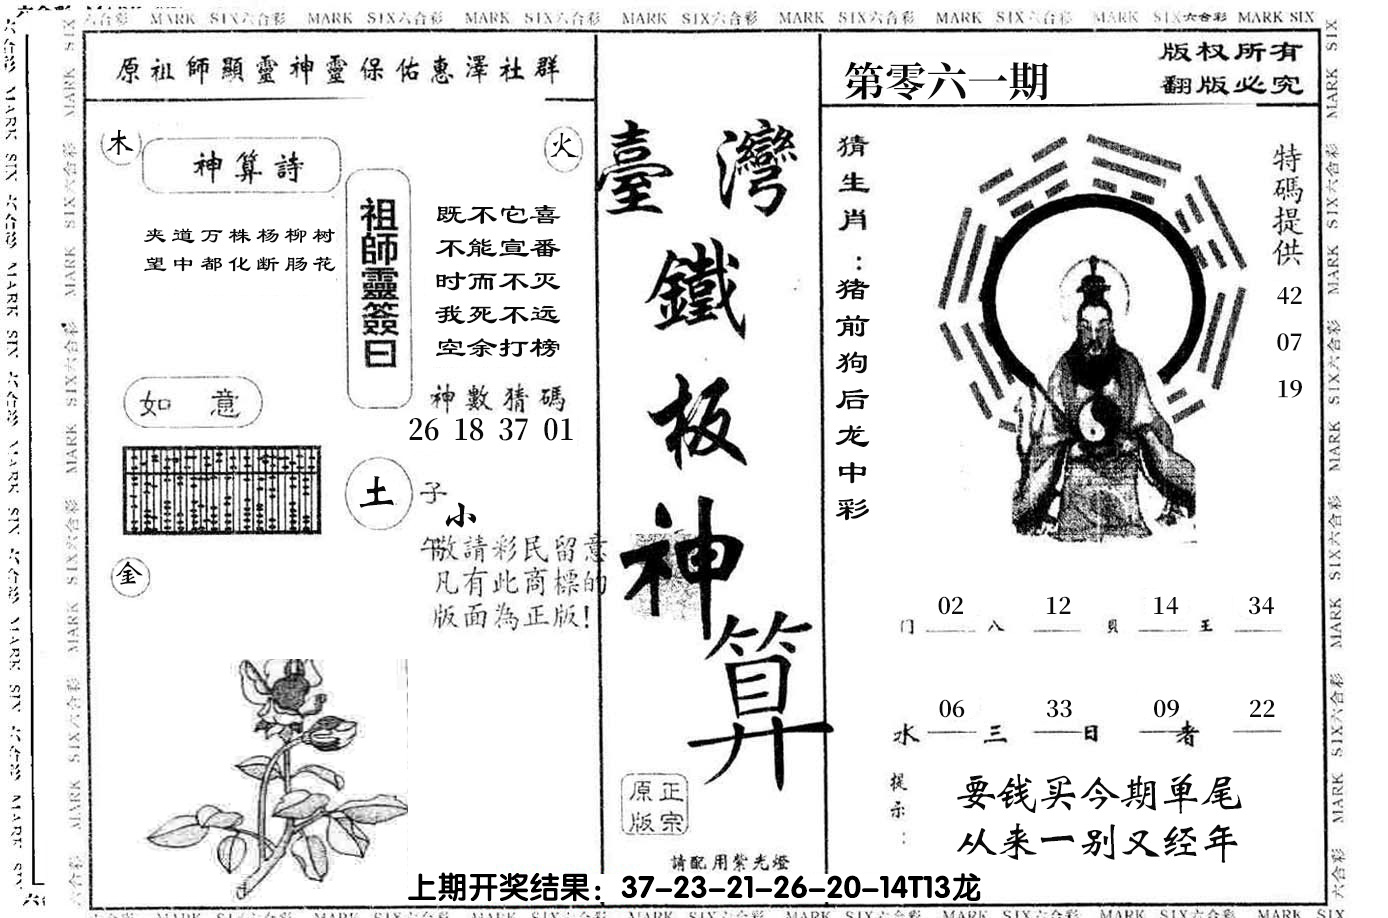 六合彩 MARK SIX 六合彩 MARK SIX 六合彩 MARK SIX 六合彩 MARK SIX 六合彩 MARK SIX 六合彩 MARK SIX 六合彩 MARK SIX 六合彩 MARK SIX
原祖師顯靈神靈保佑惠澤社群
木
火
神算詩
夹道万株杨柳树
望中都化断肠花
祖師靈簽曰
既不它喜
不能宣番
时而不灭
我死不远
空余打榜
神數猜碼
26 18 37 01
如 意
土
子
小
午
敬請彩民留意
凡有此商標的
版面為正版!
金
臺灣
鐵
板
神
算
正宗
原版
請配用紫光燈
第零六一期
版权所有
翻版必究
猜生肖:猪前狗后龙中彩
特碼提供
42
07
19
02 12 14 34
门 八 貝 王
06 33 09 22
水 三 日 者
提示:
要钱买今期单尾
从来一别又经年
上期开奖结果：37-23-21-26-20-14T13龙